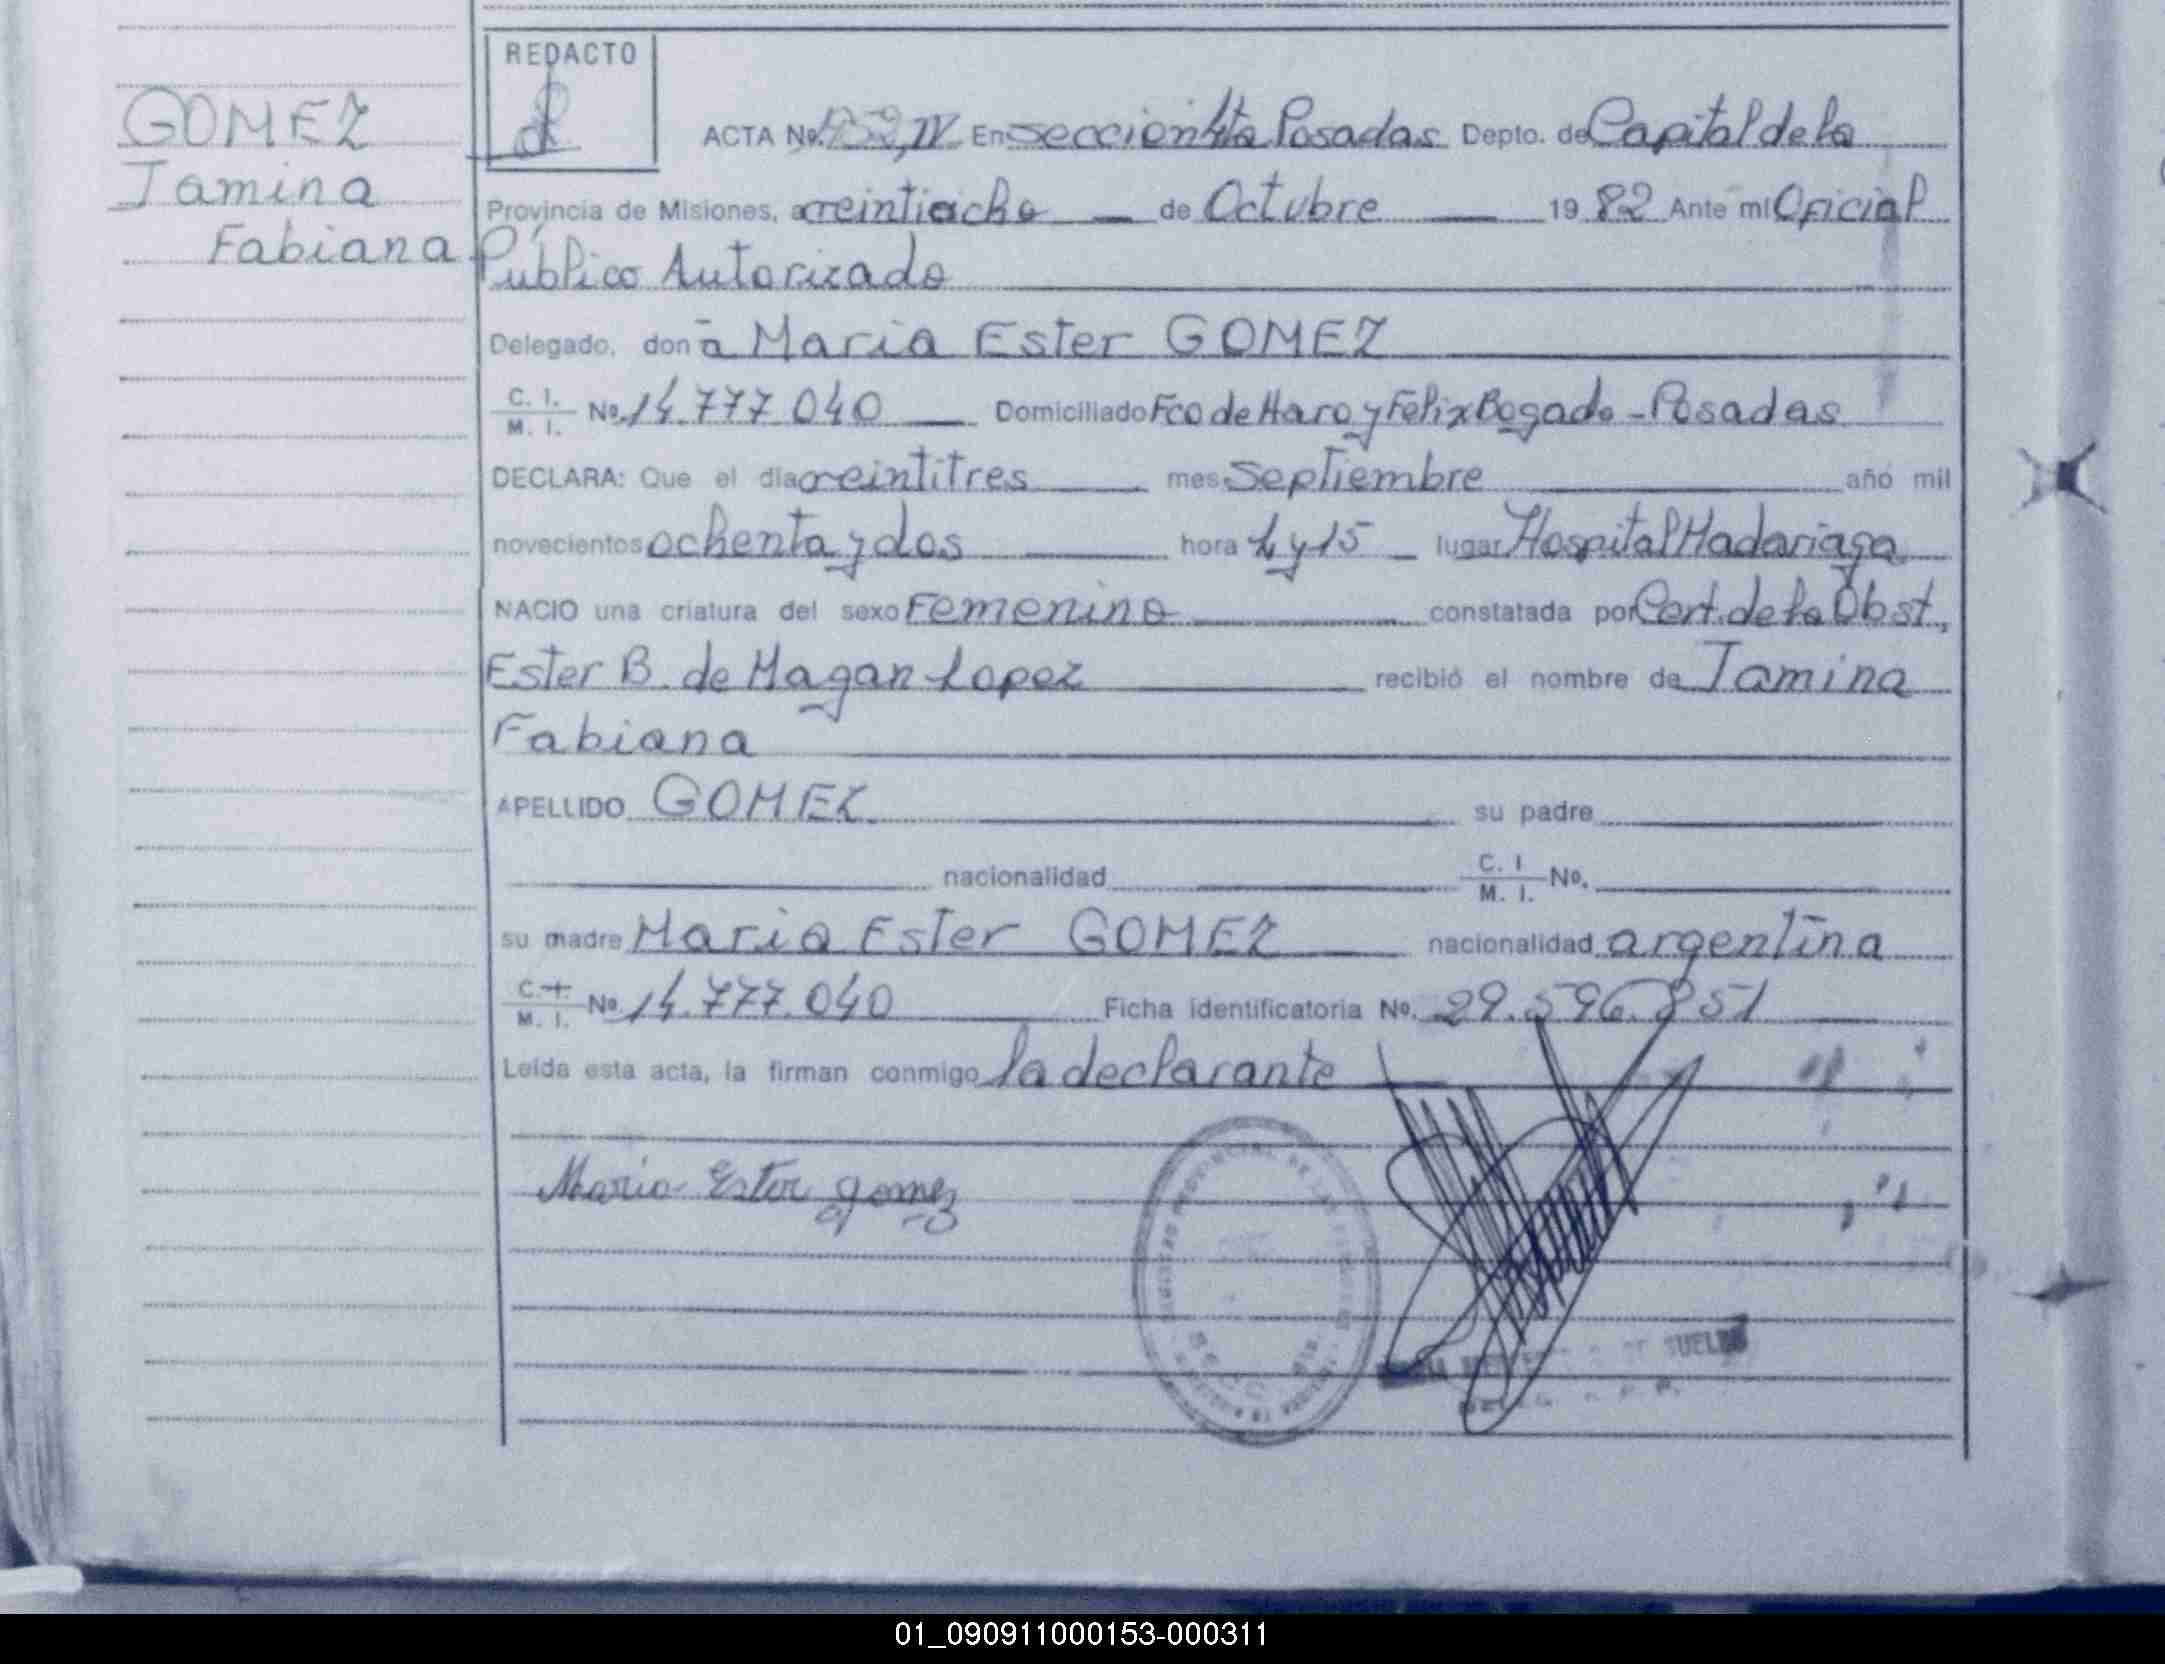 REDACTO
GOMEZ
Jamina
Fabiana
ACTA No. 1752, IV En Seccion 4ta Posadas Depto. de Capital de la
Provincia de Misiones, a veintiocho de Octubre 19 82 Ante mi Oficial
Público Autorizado
Delegado, don a Maria Ester GOMEZ
C. I. M. I. No. 14.777.040 Domiciliado Fco de Haro y Felix Bogado - Posadas
DECLARA: Que el día veintitres mes Septiembre año mil
novecientos ochenta y dos hora 4 y 15 lugar Hospital Madariaga
NACIO una criatura del sexo Femenino constatada por Cert. de la Obst,
Ester B. de Magan Lopez recibió el nombre de Jamina
Fabiana
APELLIDO GOMEZ su padre
nacionalidad C. I M. I. No.
su madre Maria Ester GOMEZ nacionalidad argentina
C. I. M. I. No. 14.777.040 Ficha identificatoria No. 29.596.851
Leída esta acta, la firman conmigo la declarante
Maria Ester gomez
DE SUELDO
01_090911000153-000311